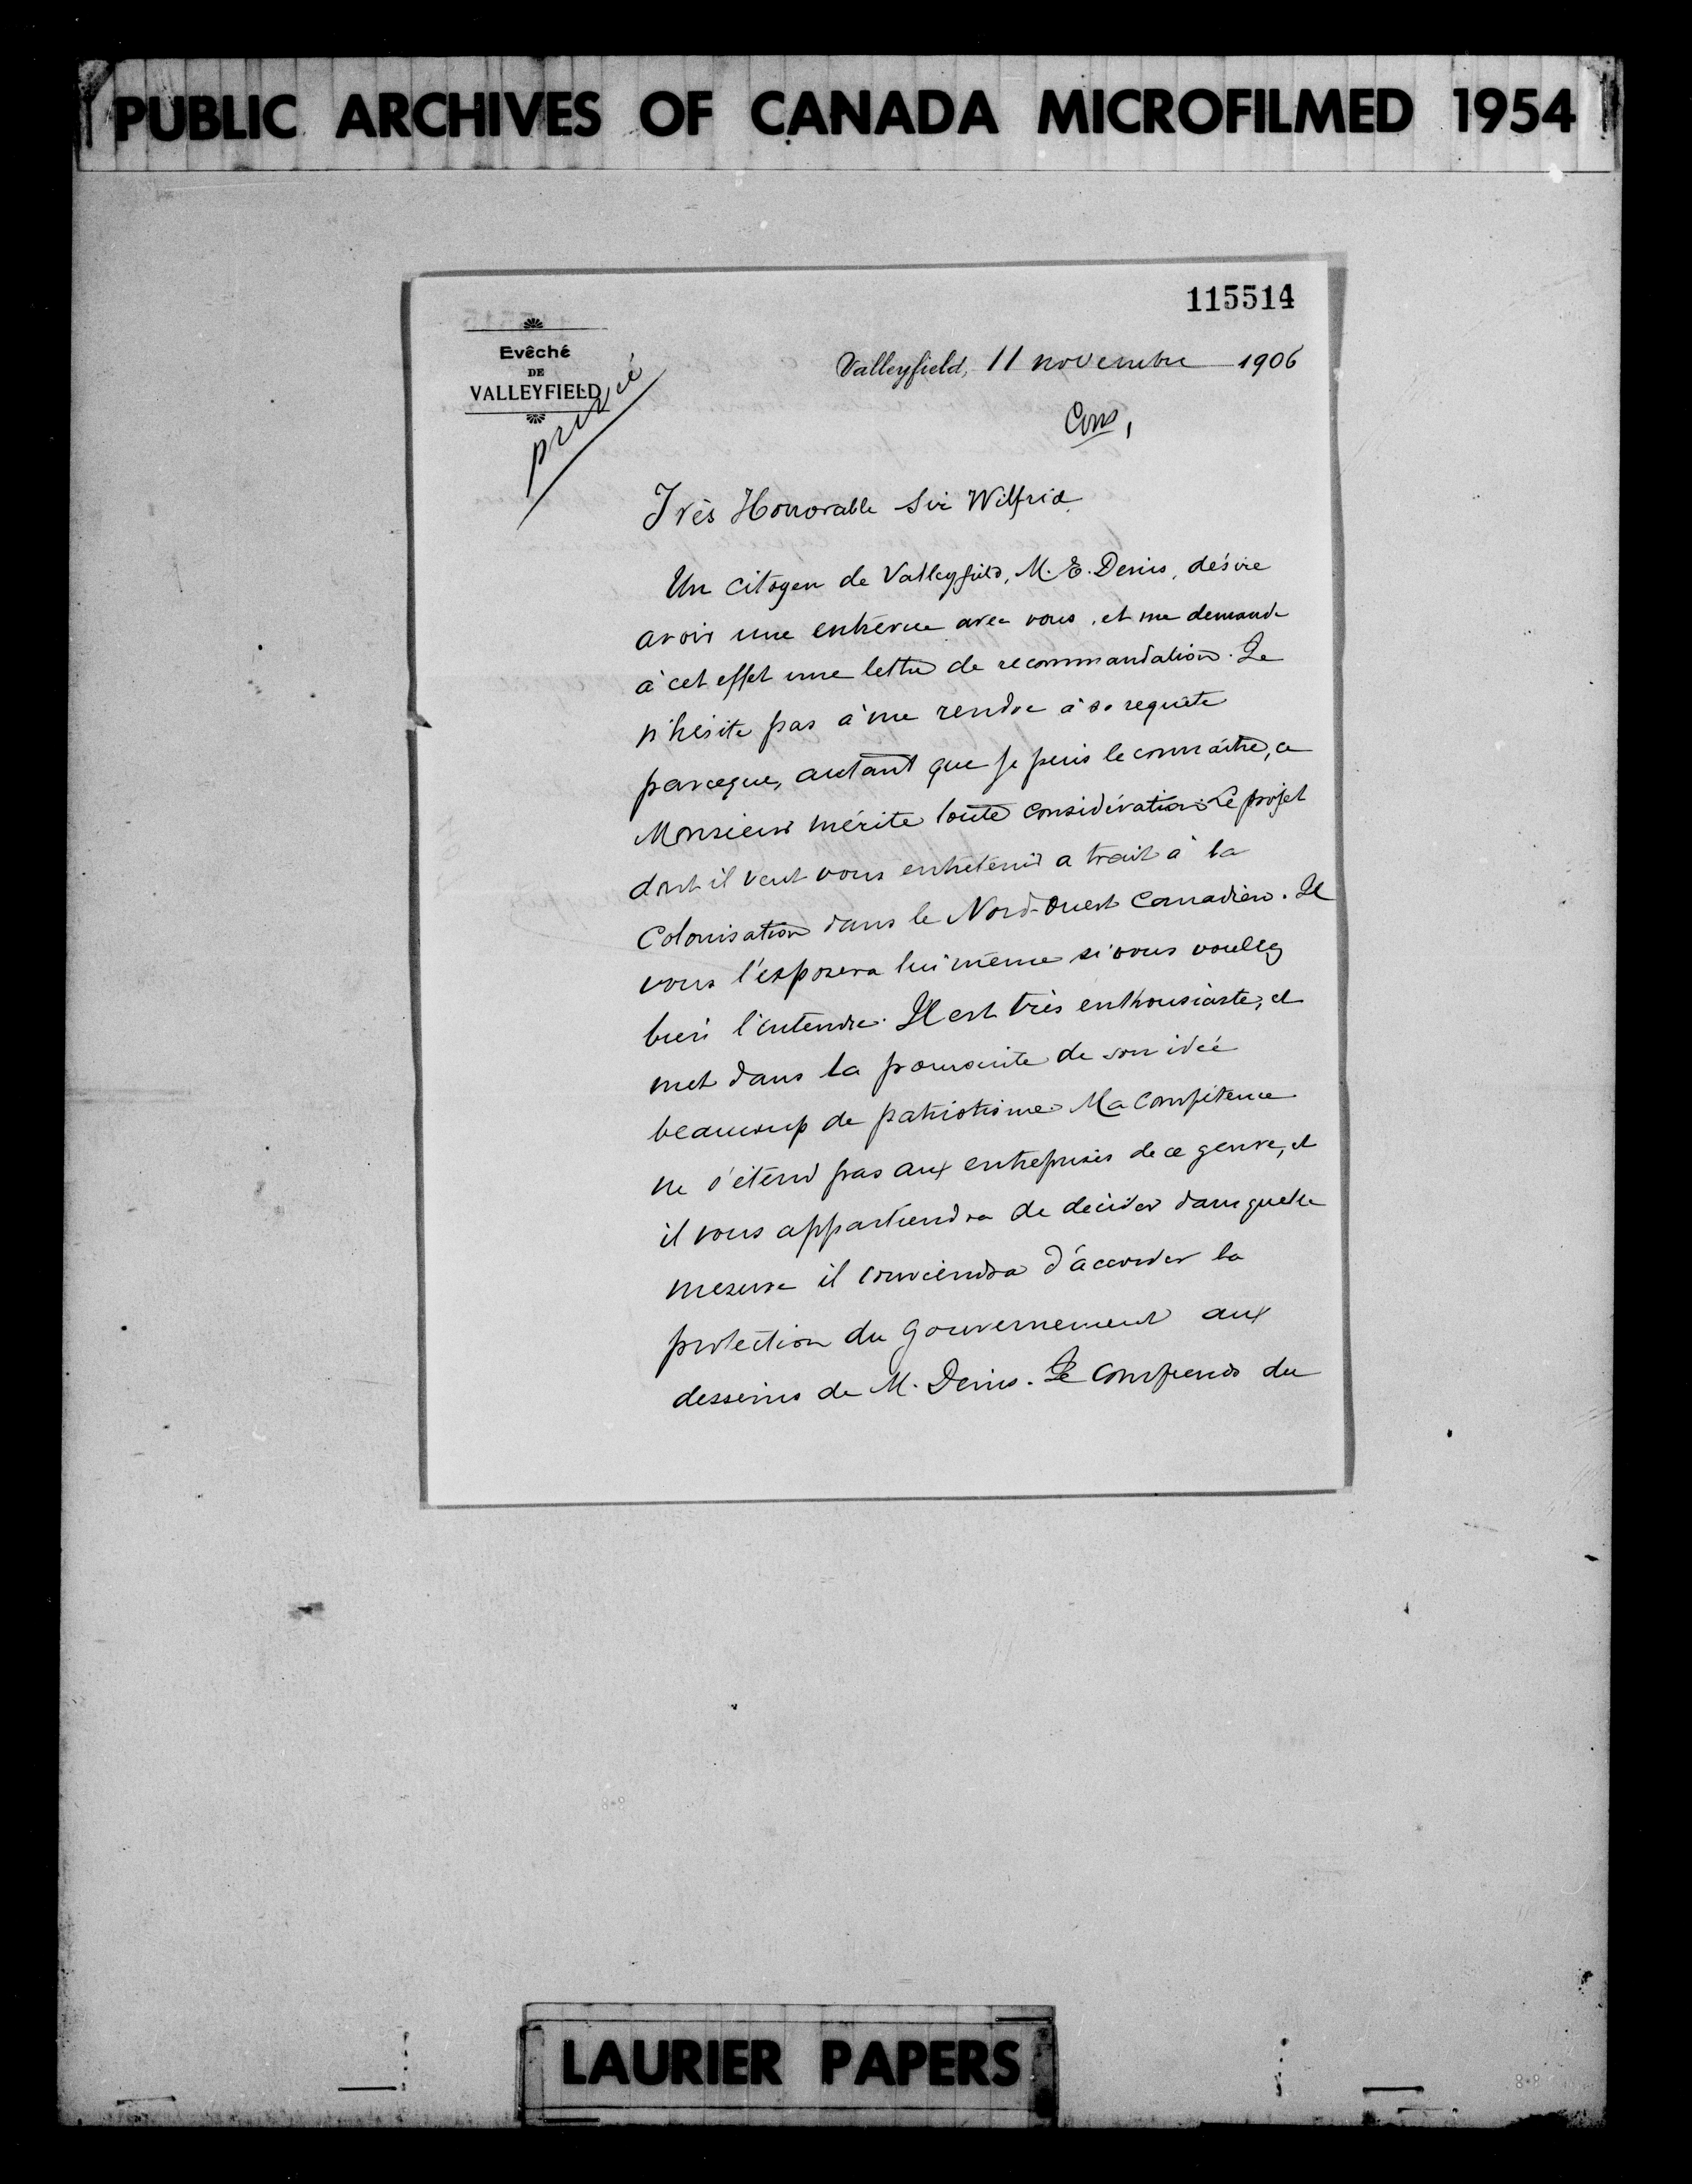 PUBLIC ARCHIVES OF CANADA MICROFILMED 1954
115514
Evêché
DE
VALLEYFIELD
privée
Valleyfield, 11 novembre 1906
Très Honorable Sir Wilfrid
Un citoyen de Valleyfield, M. E. Denis, désire
avoir une entrevue avec vous, et me demande
à cet effet une lettre de recommandation. Je
n'hésite pas à me rendre à sa requête
parceque, autant que je puis le connaître, ce
Monsieur mérite toute considération. Le projet
dont il veut vous entretenir a trait à la
Colonisation dans le Nord-Ouest Canadien. Il
vous l'exposera lui même si vous voulez
bien l'entendre. Il est très enthousiaste, et
met dans la poursuite de son idée
beaucoup de patriotisme. Ma compétence
ne s'étend pas aux entreprises de ce genre, et
il vous appartiendra de décider dans quelle
mesure il conviendra d'accorder la
protection du Gouvernement aux
desseins de M. Denis. Je comprends du
LAURIER PAPERS